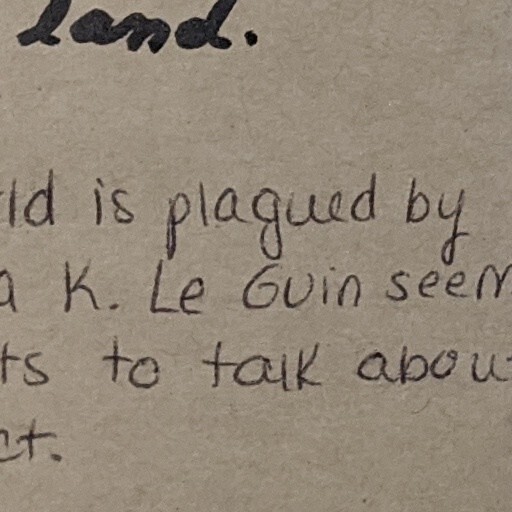 land.
rld is plagued by
a K. Le Guin seem
ts to talk about
ct.